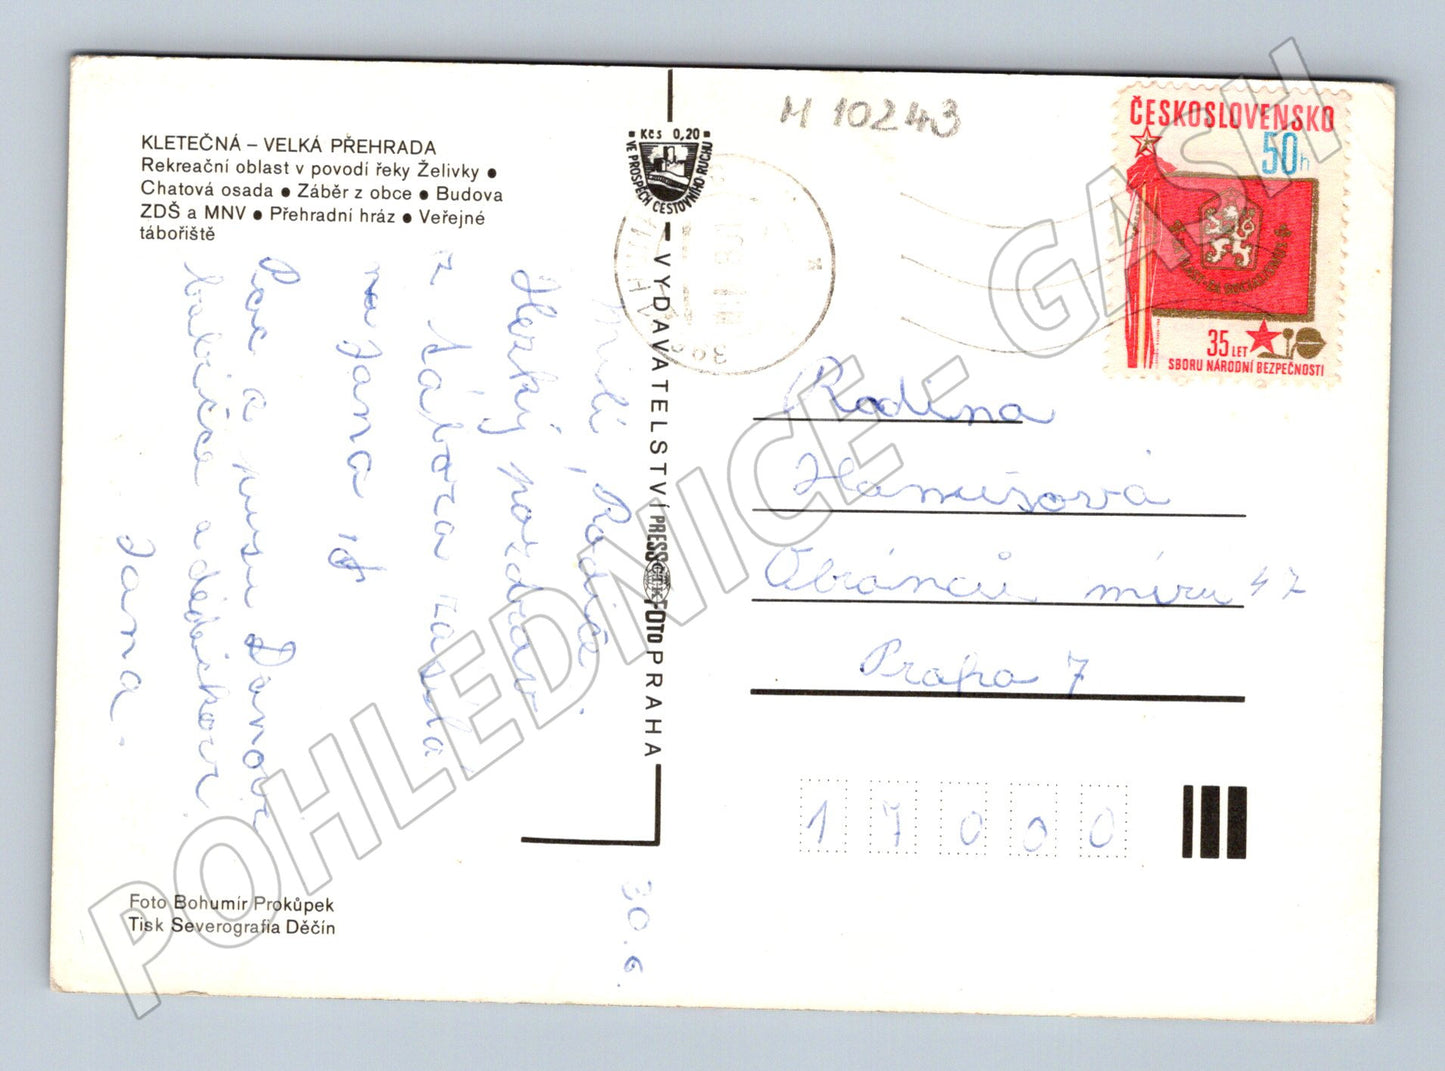 KLETEČNÁ – VELKÁ PŘEHRADA
Rekreační oblast v povodí řeky Želivky ●
Chatová osada ● Záběr z obce ● Budova
ZDŠ a MNV ● Přehradní hráz ● Veřejné
tábořiště
Kčs 0,20
VE PROSPĚCH CESTOVNÍHO RUCHU
M 10243
ČESKOSLOVENSKO
50h
35 LET
SBORU NÁRODNÍ BEZPEČNOSTI
30.6.
Milí Rodiče,
Herzký pozdrav
z tábora
na Jana
Pac a pusu Danovi
babičce a dědečkovi
Jana.
VYDAVATELSTVÍ PRESSFOTO PRAHA
ČTK
Rodina
Hanušová
Obránců míru 47
Praha 7
17000
Foto Bohumír Prokůpek
Tisk Severografia Děčín
POHLEDNICE - GASH